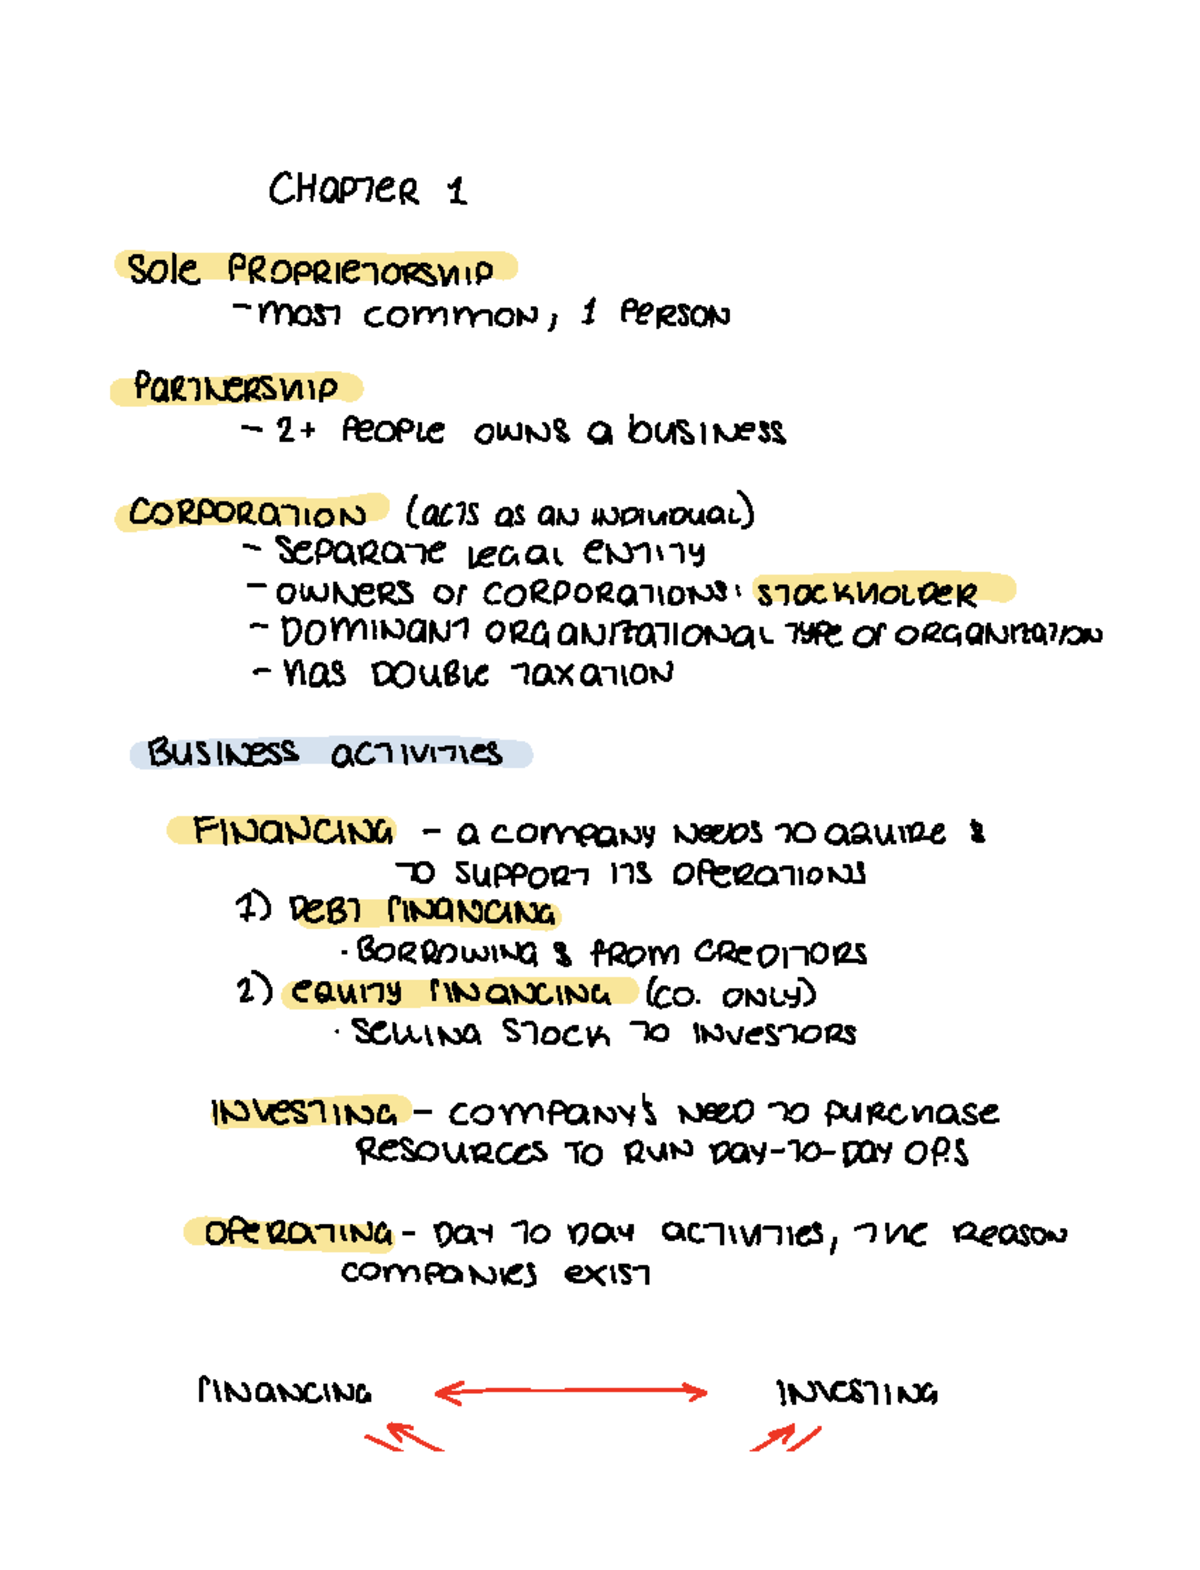 CHAPTER 1
SOLE PROPRIETORSHIP
- MOST COMMON, 1 PERSON
PARTNERSHIP
- 2+ PEOPLE OWNS A BUSINESS
CORPORATION (ACTS AS AN INDIVIDUAL)
- SEPARATE LEGAL ENTITY
- OWNERS OF CORPORATIONS: STOCKHOLDER
- DOMINANT ORGANIZATIONAL TYPE OF ORGANIZATION
- HAS DOUBLE TAXATION
BUSINESS ACTIVITIES
FINANCING - A COMPANY NEEDS TO AQUIRE $
TO SUPPORT ITS OPERATIONS
1) DEBT FINANCING
· BORROWING $ FROM CREDITORS
2) EQUITY FINANCING (CO. ONLY)
· SELLING STOCK TO INVESTORS
INVESTING - COMPANY'S NEED TO PURCHASE
RESOURCES TO RUN DAY-TO-DAY OPS
OPERATING - DAY TO DAY ACTIVITIES, THE REASON
COMPANIES EXIST
FINANCING INVESTING